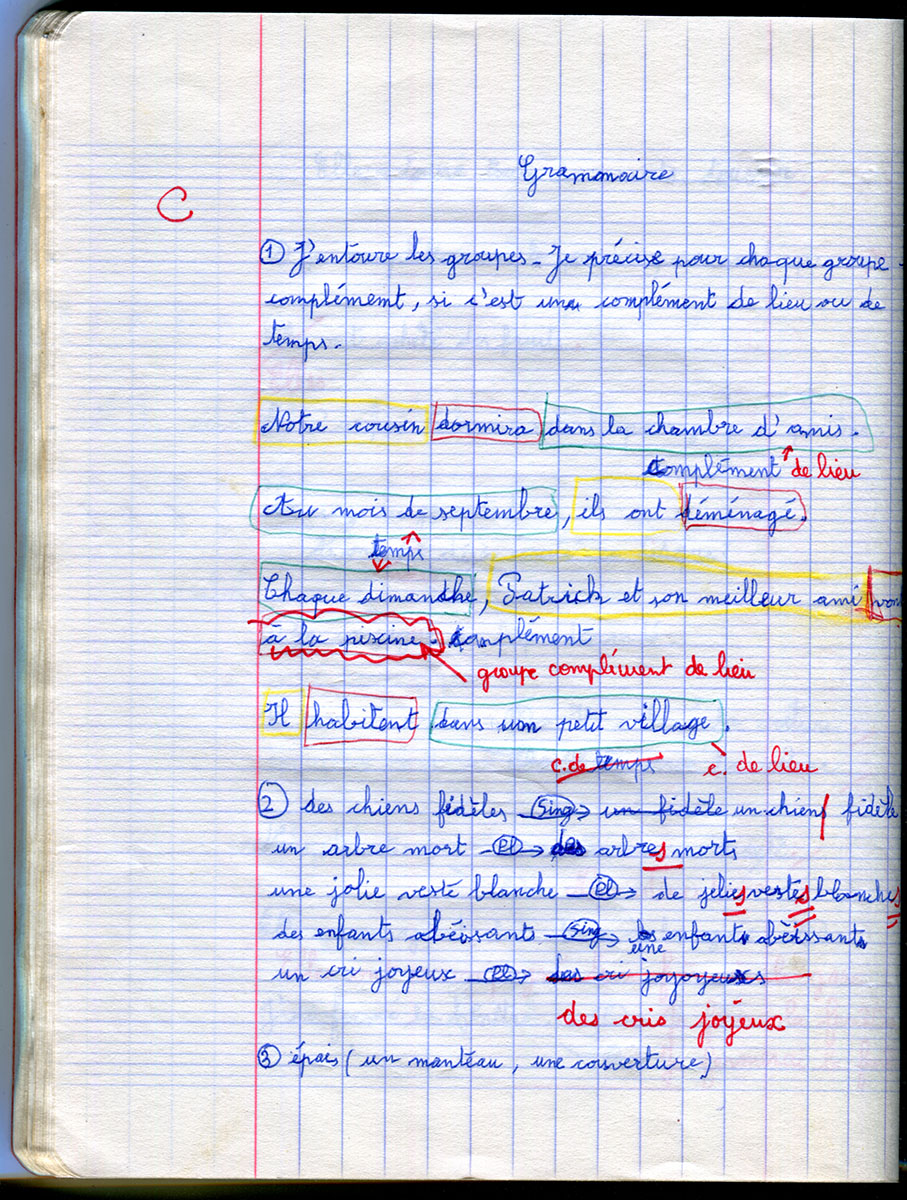 Grammaire
C
① J'entoure les groupes - Je précise pour chaque groupe
complément, si c'est un complément de lieu ou de
temps.
Notre cousin dormira dans la chambre d'amis.
complément de lieu
Au mois de septembre, ils ont déménagé.
temps
Chaque dimanche, Patrick et son meilleur ami
à la piscine. complément
groupe complément de lieu
Il habitent dans uon petit village.
c. de temps c. de lieu
② des chiens fidèles Sing → un fidèle un chien fidèle
un arbre mort Pl → des arbres morts
une jolie veste blanche Pl → de jolies vestes blanches
des enfants obéissants Sing → enfant obéissant
une
un cri joyeux Pl → des cri joyoyeuxs
des cris joyeux
③ épais (un manteau, une couverture)